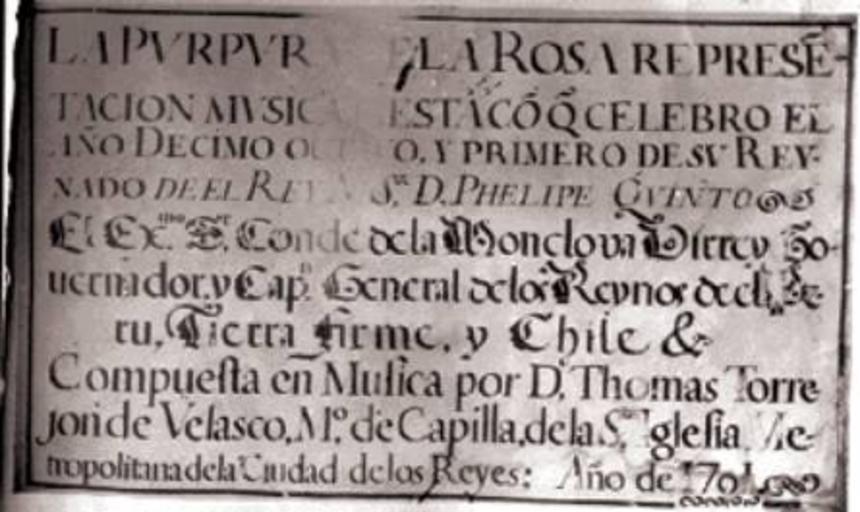 LA PVRPVR LA ROSA REPRESĒ-
TACION MVSIC ESTA CŌ Q̃ CELEBRO EL
AÑO DECIMO O O, Y PRIMERO DE SV REY-
NADO DE EL REY Sr. D. PHELIPE QVINTO
El Exmo. Sr. Conde de la Monclova Virrey Go-
uernador, y Capn. General de los Reynos de el Pe-
ru, Tierra firme, y Chile &
Compuesta en Musica por D. Thomas Torre
jon de Velasco, Mo. de Capilla, de la Sta. Iglesia Me-
tropolitana de la Ciudad de los Reyes: Año de 1701